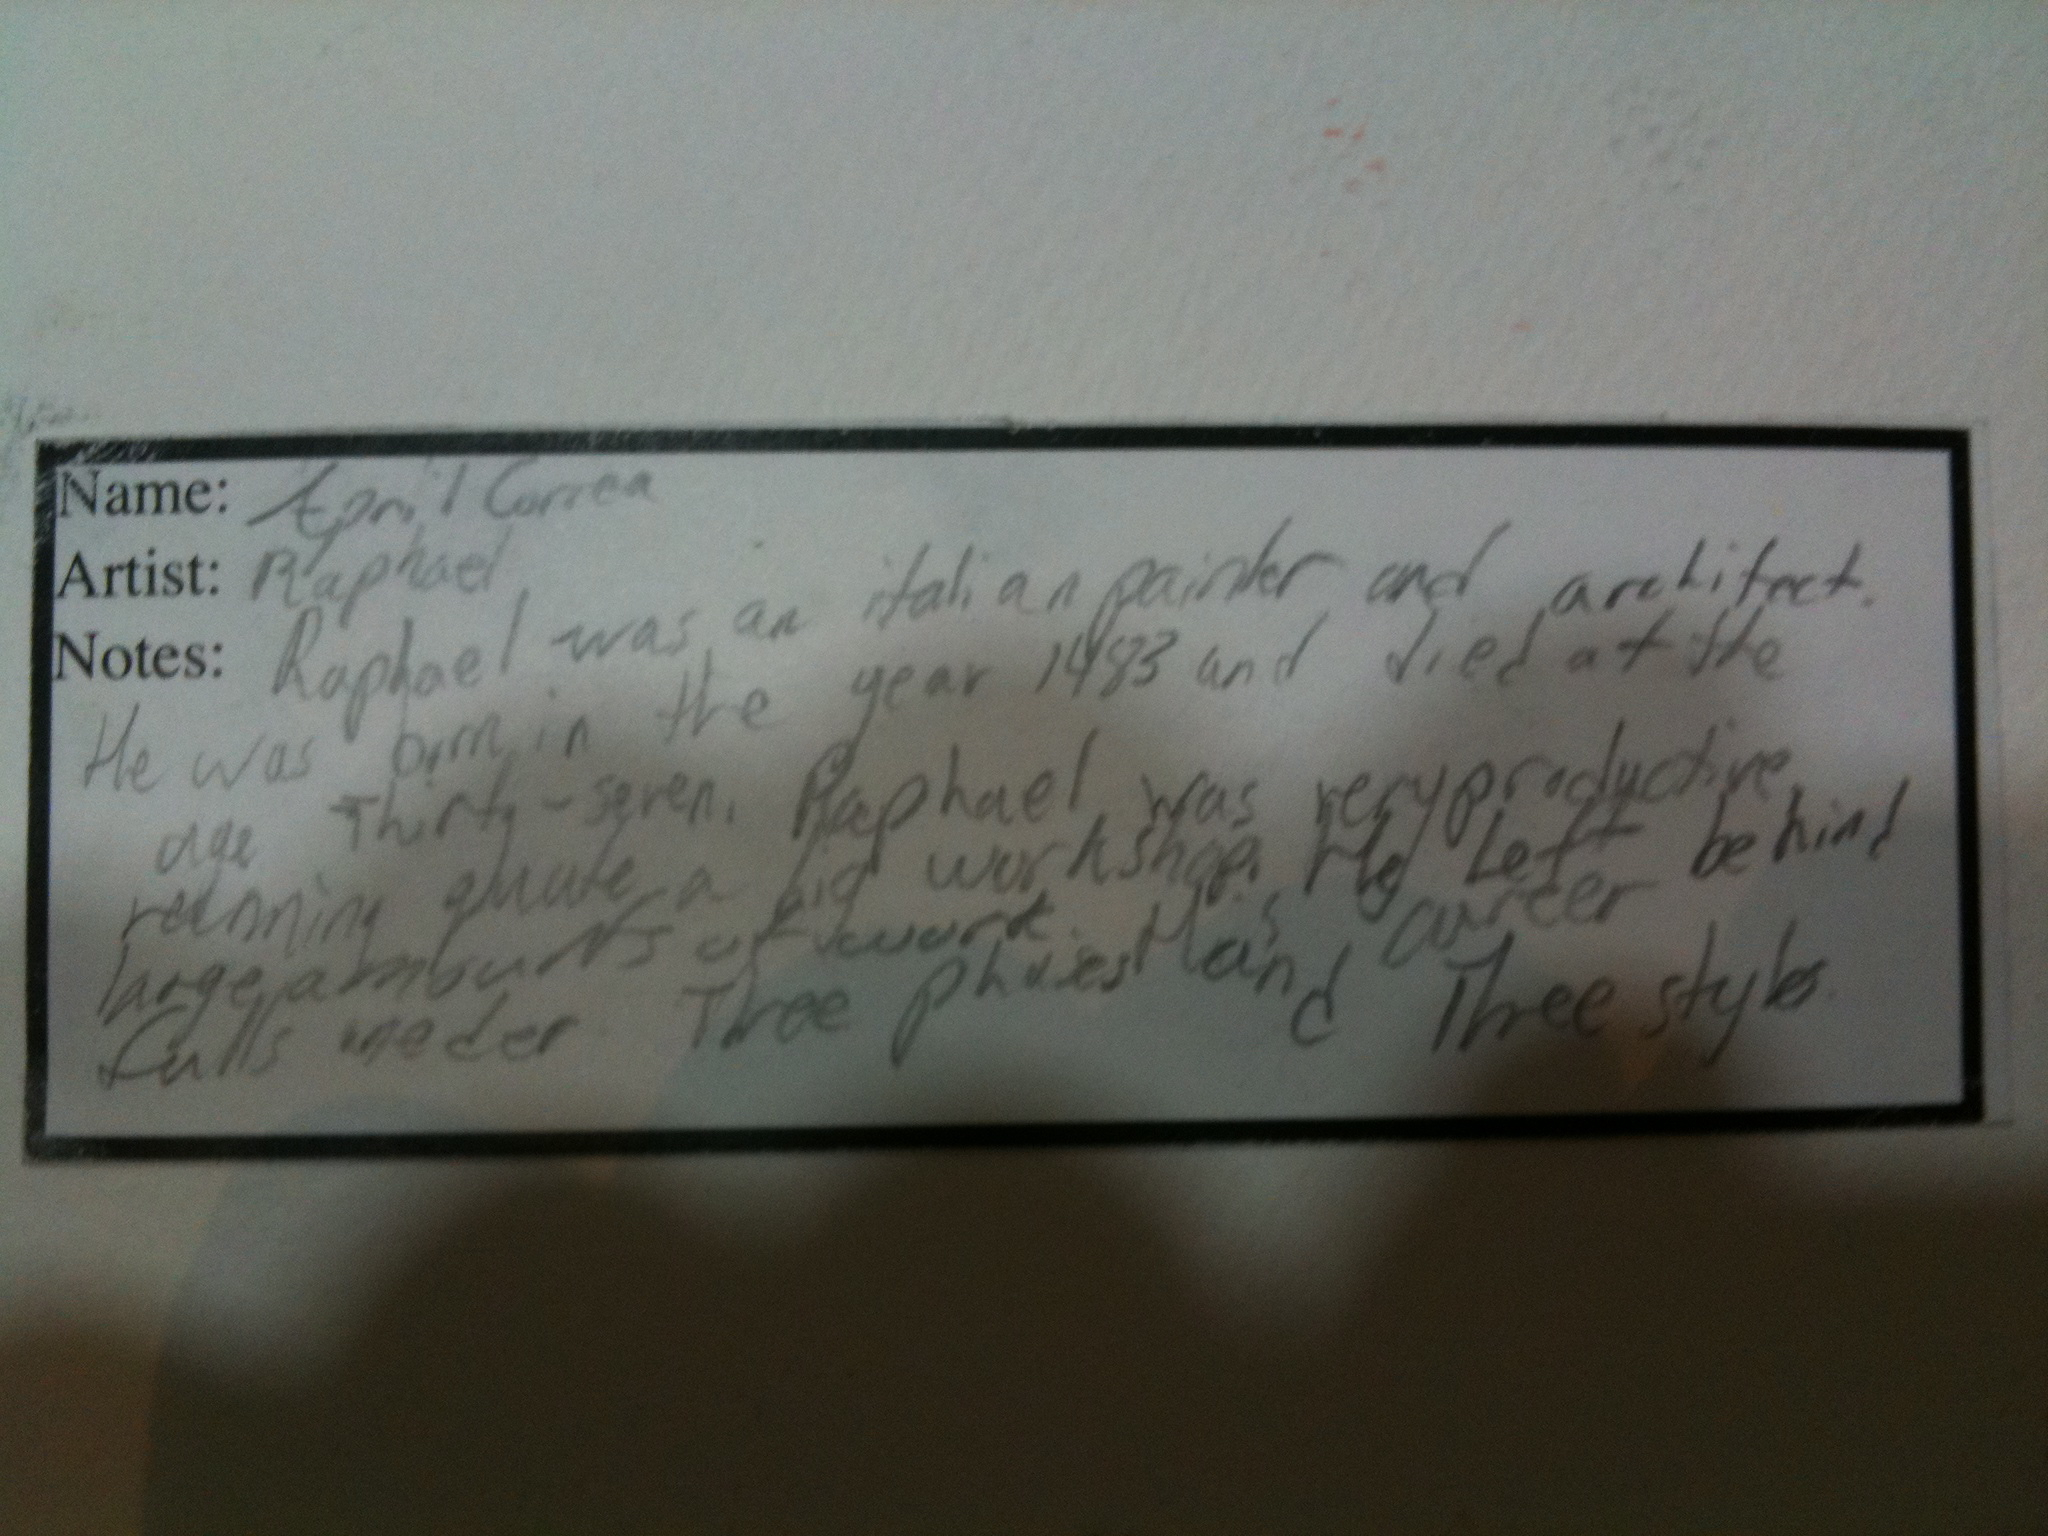 Name: April Correa
Artist: Raphael
Notes: Raphael was an italian painter and architect.
He was born in the year 1483 and died at the
age Thirty-seven. Raphael was very productive
running quiute a big workshop. He Left behind
large ambounts of work. His career
falls uneder Three phases and Three styles